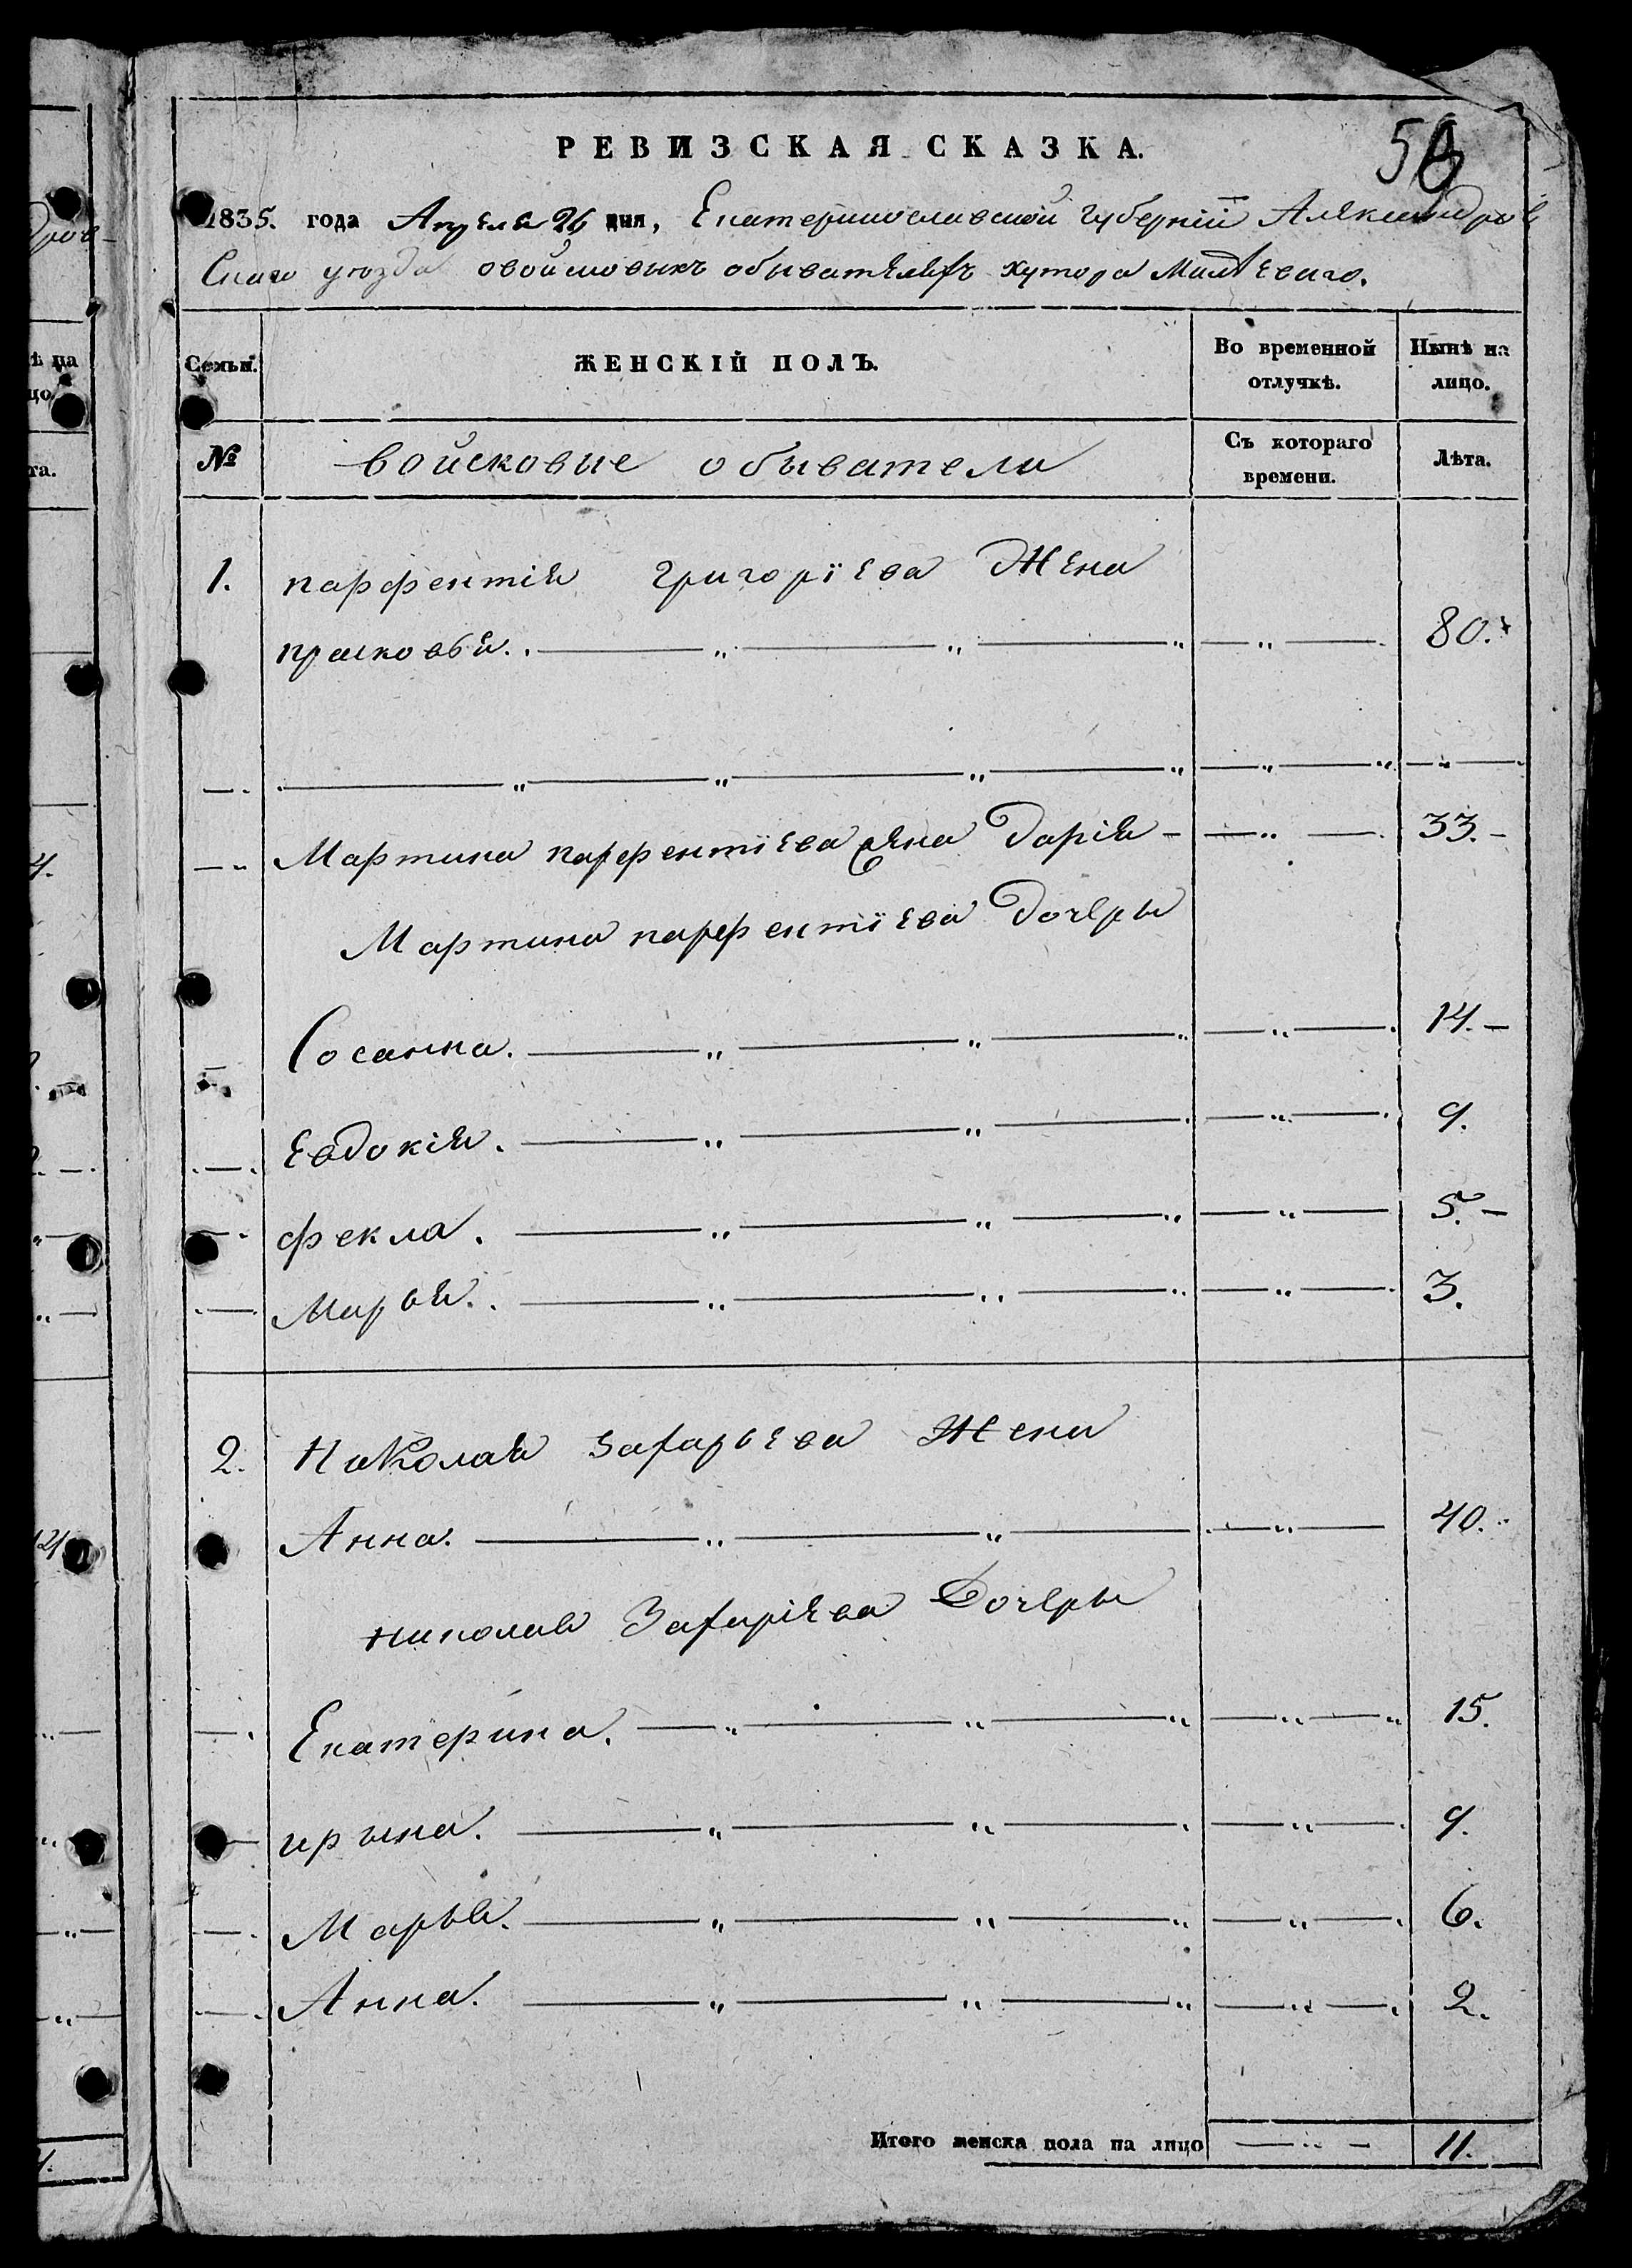 РЕВИЗСКАЯ СКАЗКА.
1835. года Апреля 26 дня, Екатеринославской губернїи Александров
Скаго уезда овойсковыхъ обывателяхъ хутора
Семьи.
ЖЕНСКІЙ ПОЛЪ.
Во временной отлучкѣ.
Нынѣ на лицо.
№
войсковые обыватели
Съ котораго времени.
Лѣта.
1. парфентія григорїева Жена
прасковья. 80.
Мартина парфентїева жена Дарія 33.
Мартина парфентїева Дочеры
Сосанна. 14.
Евдокія. 9.
фекла. 5.
Марья. 3.
2. Николая Захарьева Жена
Анна. 40.
николая Захаріева Дочеры
Екатерина. 15.
ирына. 9.
Марья. 6.
Анна. 2.
Итого женска пола на лицо 11.